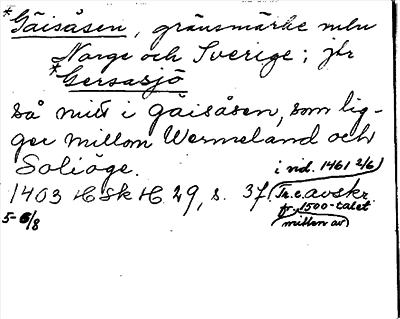 *Gäisåsen, gränsmärke mln
Norge och Sverige; jfr
*Gersasjö
så mitt i gäisåsen, som lig-
ger millom Wermeland och
Soliöge.
i vid. 1461 2/6)
1403 HSkH 29, s. 37 (Tr. e. avskr.
fr. 1500-talet
5-6/8
mitten av)